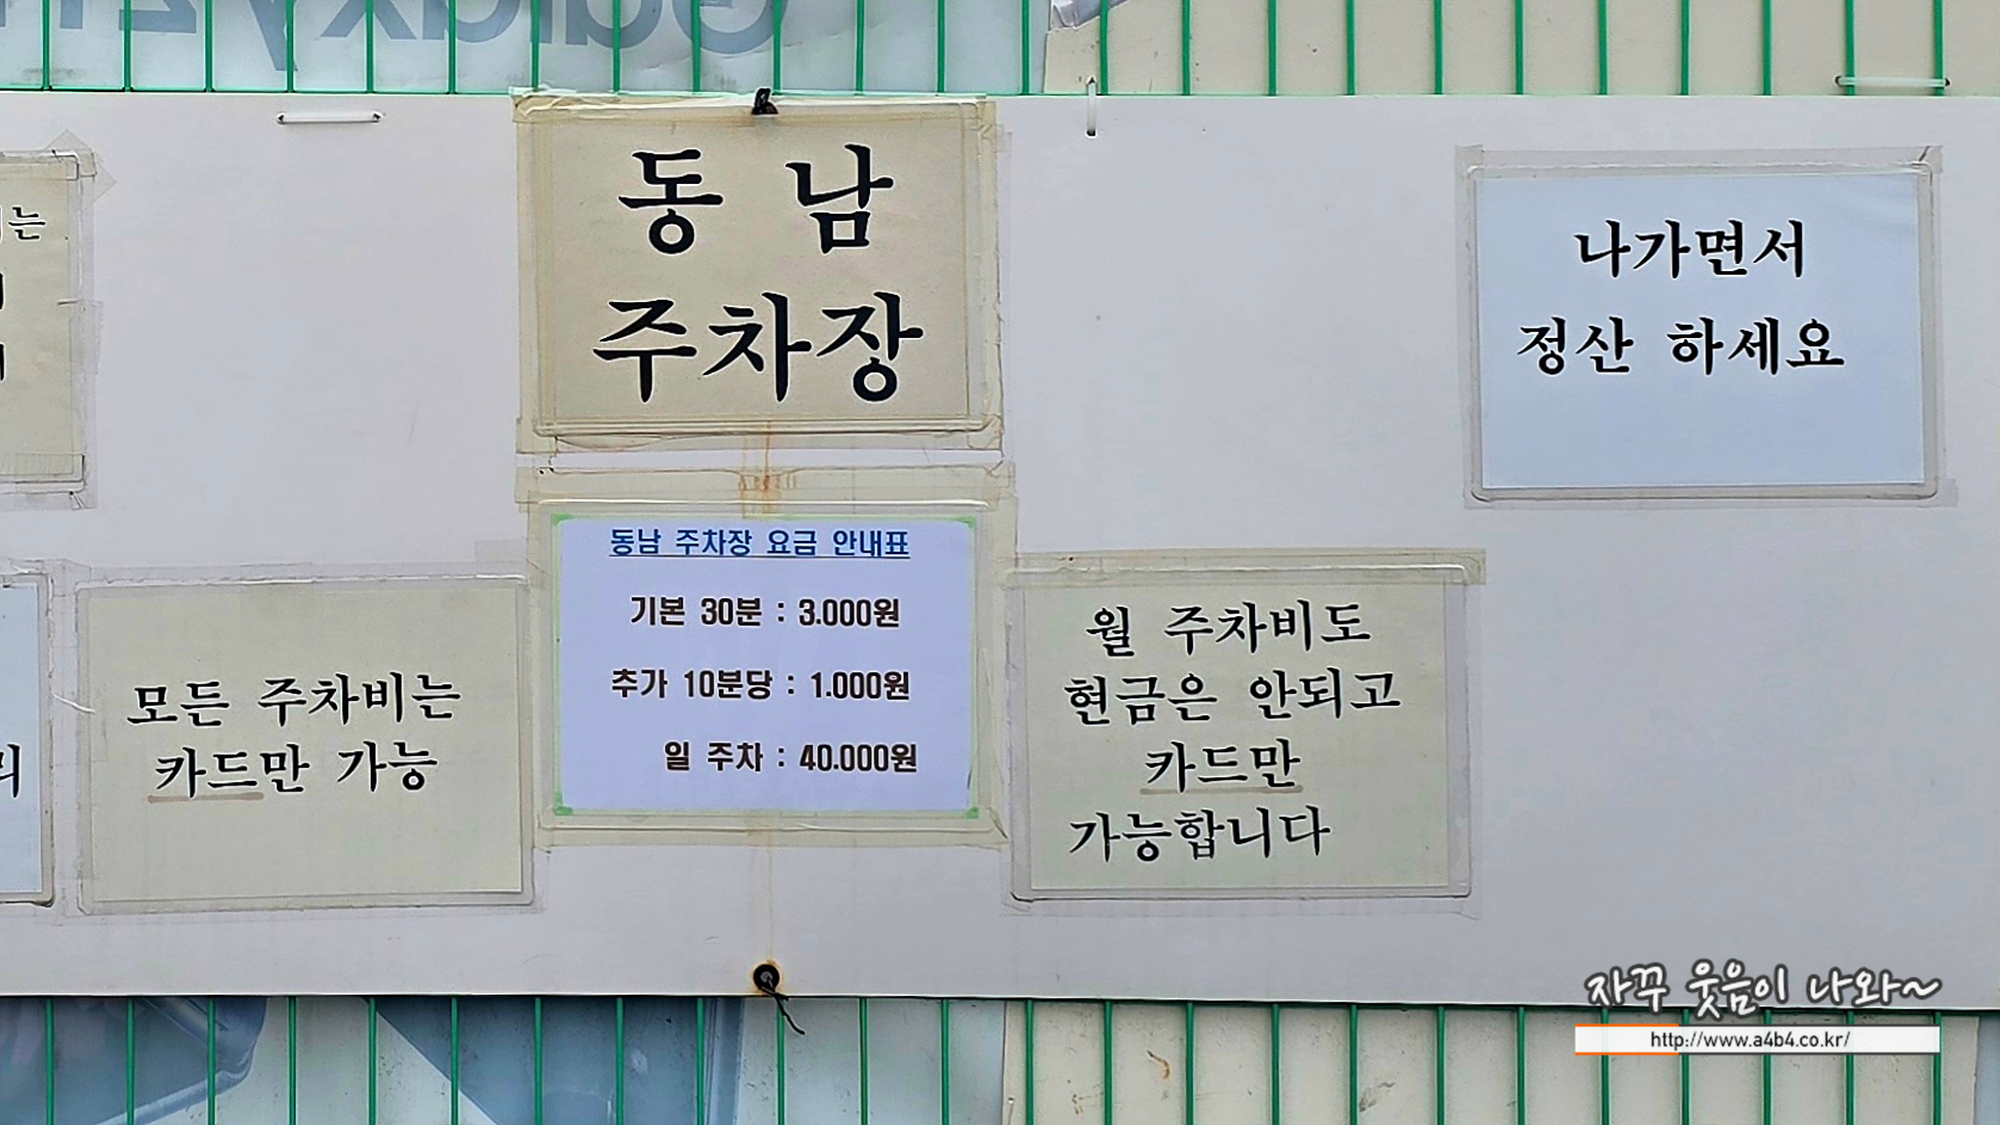 동 남
주차장
나가면서
정산 하세요
동남 주차장 요금 안내표
기본 30분 : 3.000원
추가 10분당 : 1.000원
일 주차 : 40.000원
모든 주차비는
카드만 가능
월 주차비도
현금은 안되고
카드만
가능합니다
는
리
Galaxy
자꾸 웃음이 나와~
http://www.a4b4.co.kr/